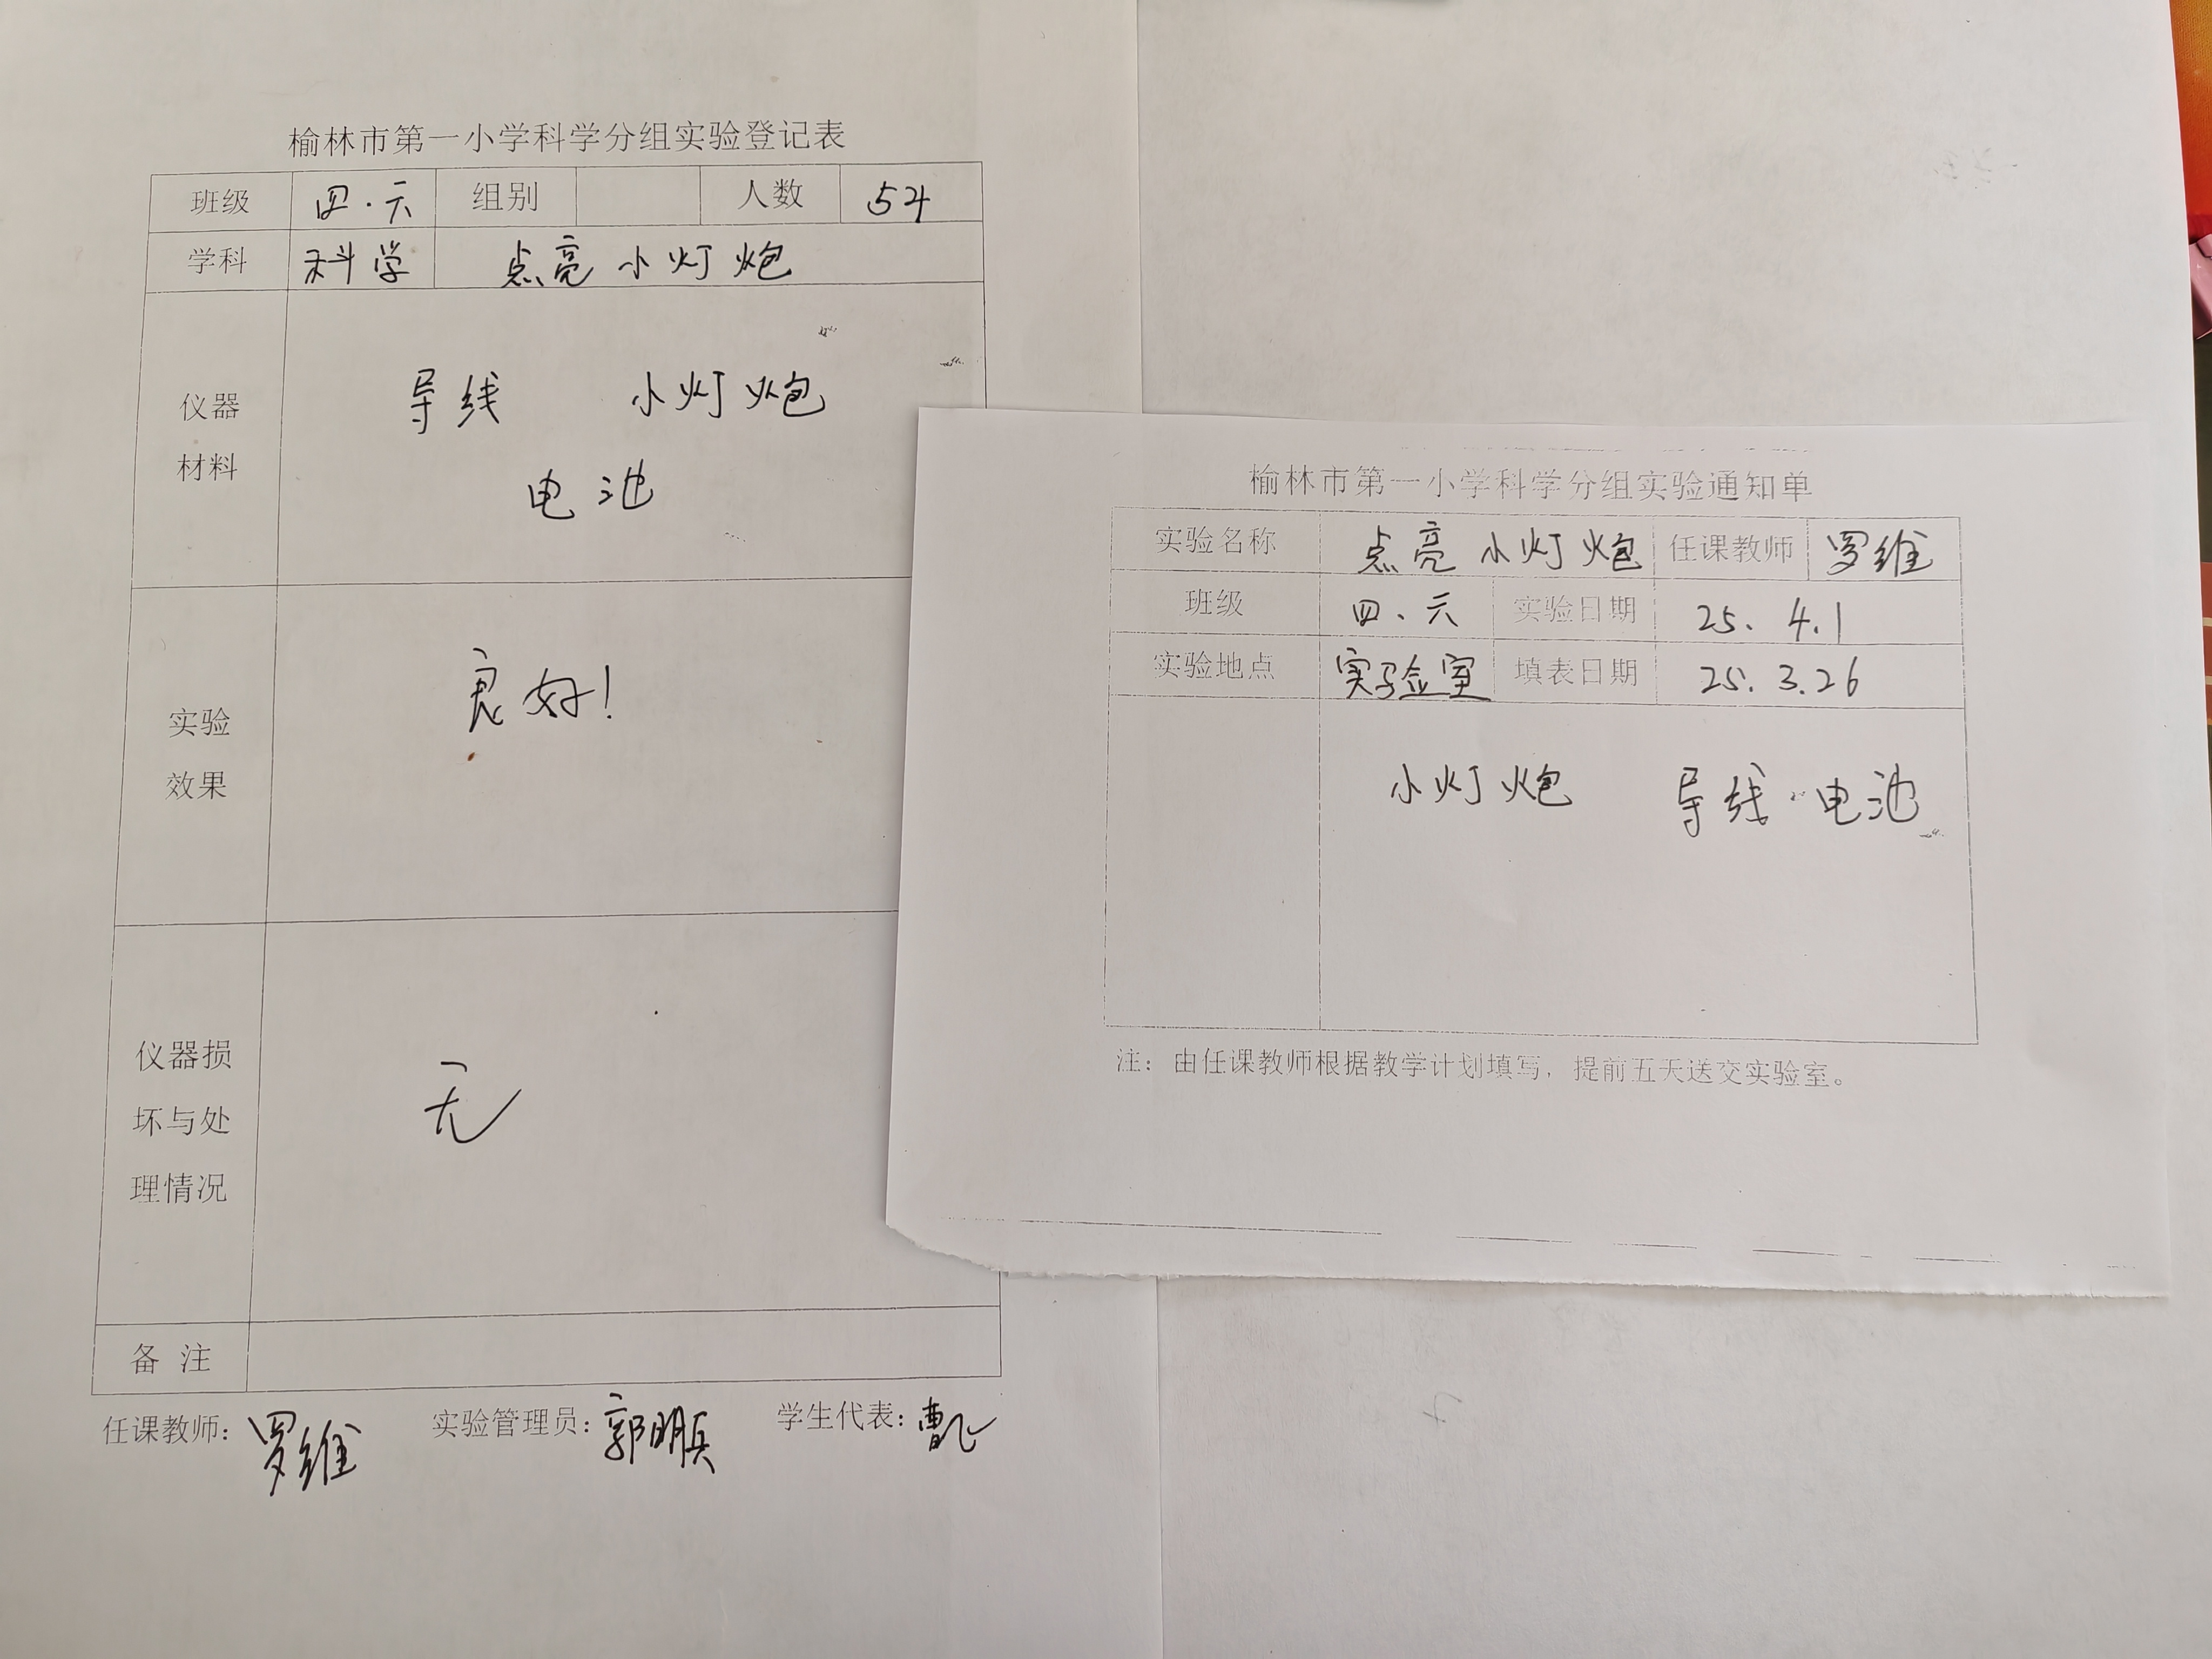 榆林市第一小学科学分组实验登记表
班级 四.六 组别 人数 54
学科 科学 点亮小灯炮
仪器
材料
导线 小灯炮
电池
实验
效果
良好!
仪器损
坏与处
理情况
无
备 注
任课教师: 罗维 实验管理员: 郭明兵 学生代表: 曹飞
榆林市第一小学科学分组实验通知单
实验名称 点亮小灯炮 任课教师 罗维
班级 四、六 实验日期 25. 4.1
实验地点 实验室 填表日期 25.3.26
小灯炮 导线 电池
注: 由任课教师根据教学计划填写, 提前五天送交实验室。